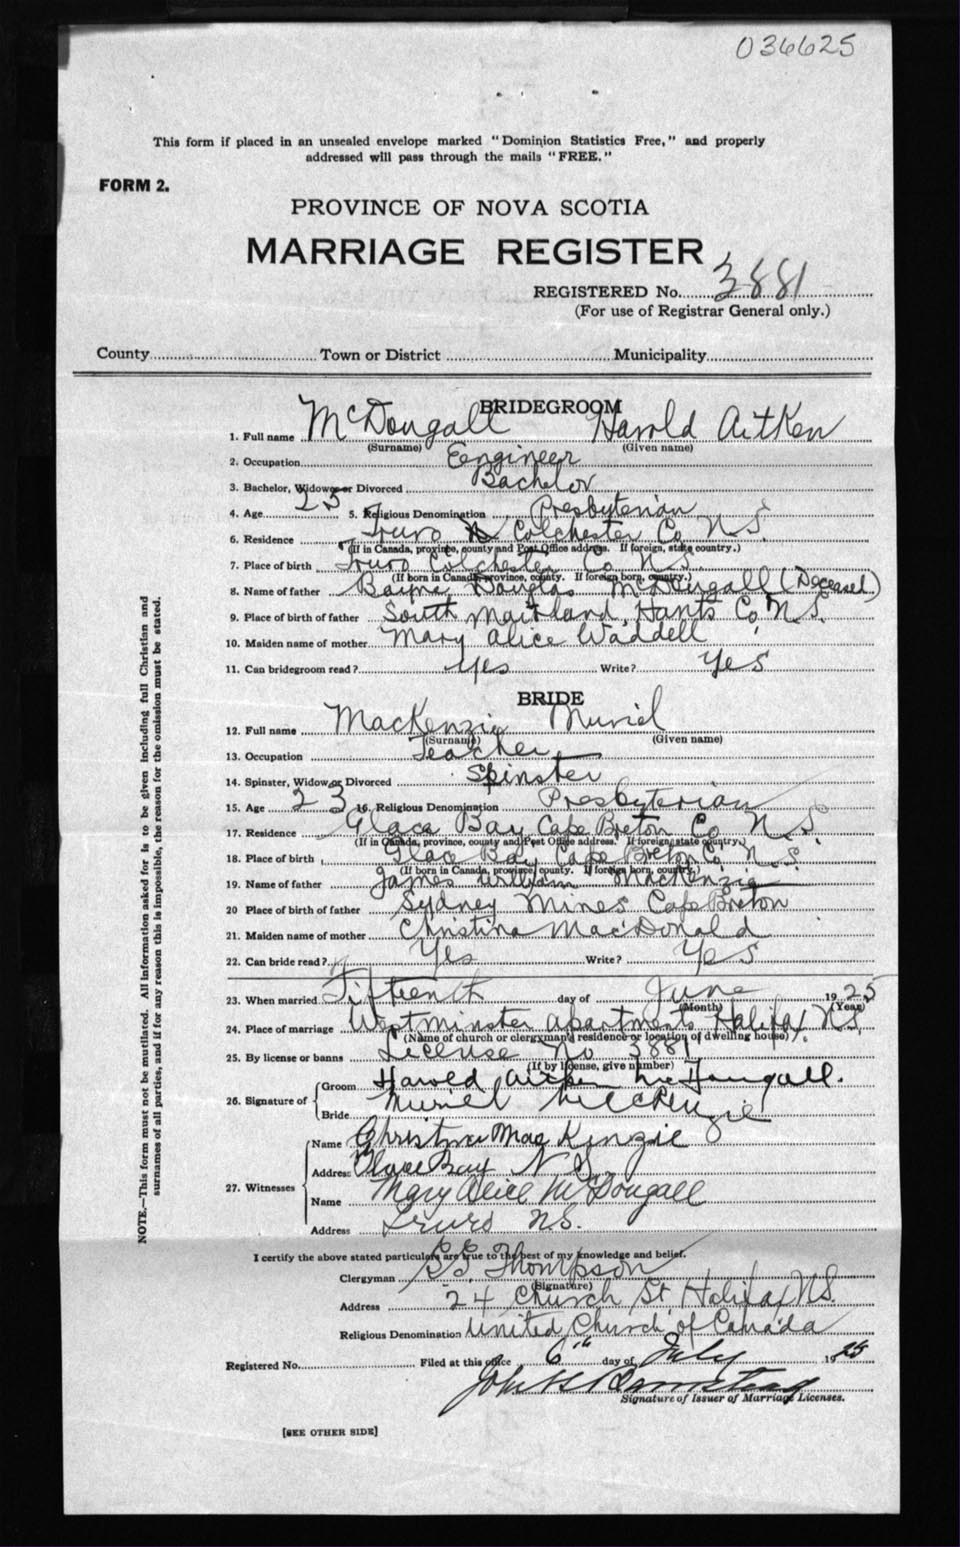 036625
This form if placed in an unsealed envelope marked "Dominion Statistics Free," and properly
addressed will pass through the mails "FREE."
FORM 2.
PROVINCE OF NOVA SCOTIA
MARRIAGE REGISTER
REGISTERED No. 3881
(For use of Registrar General only.)
County Town or District Municipality
BRIDEGROOM
1. Full name McDougall Harold Aitken
(Surname) (Given name)
2. Occupation Eengineer
3. Bachelor, Widower or Divorced Bachelor
4. Age 25 5. Religious Denomination Presbyterian
6. Residence Truro Colchester Co N.S.
(If in Canada, province, county and Post Office address. If foreign, state country.)
7. Place of birth Truro Colchester Co N.S.
(If born in Canada, province, county. If foreign born, country.)
8. Name of father Douglas McDougall (Deceased)
9. Place of birth of father South Maitland, Hants Co N.S.
10. Maiden name of mother Mary Alice Waddell
11. Can bridegroom read? Yes Write? Yes
BRIDE
12. Full name MacKenzie Muriel
(Surname) (Given name)
13. Occupation Teacher
14. Spinster, Widow or Divorced Spinster
15. Age 23 16. Religious Denomination Presbyterian
17. Residence Glace Bay Cape Breton Co N.S
(If in Canada, province, county and Post Office address. If foreign state country.)
18. Place of birth Glace Bay Cape Breton Co N.S.
(If born in Canada, province, county. If foreign born, country.)
19. Name of father James William MacKenzie
20 Place of birth of father Sydney Mines Cape Breton
21. Maiden name of mother Christina MacDonald
22. Can bride read? Yes Write? Yes
23. When married Fifteenth day of June 1925
(Month) (Year)
24. Place of marriage Westminster Apartments Halifax N.S.
(Name of church or clergyman's residence or location of dwelling house)
25. By license or banns License No 3881
(If by license, give number)
26. Signature of Groom Harold Aitken McDougall.
Bride Muriel MacKenzie
27. Witnesses Name Christine MacKenzie
Address Glace Bay N.S.
Name Mary Alice McDougall
Address Truro N.S.
I certify the above stated particulars are true to the best of my knowledge and belief.
Clergyman Thompson
(Signature)
Address 24 Church St Halifax N.S.
Religious Denomination United Church of Canada
Registered No. Filed at this office 6th day of July 1925
John
Signature of Issuer of Marriage Licenses.
[SEE OTHER SIDE]
NOTE.—This form must not be mutilated. All information asked for is to be given including full Christian and
surnames of all parties, and if for any reason this is impossible, the reason for the omission must be stated.